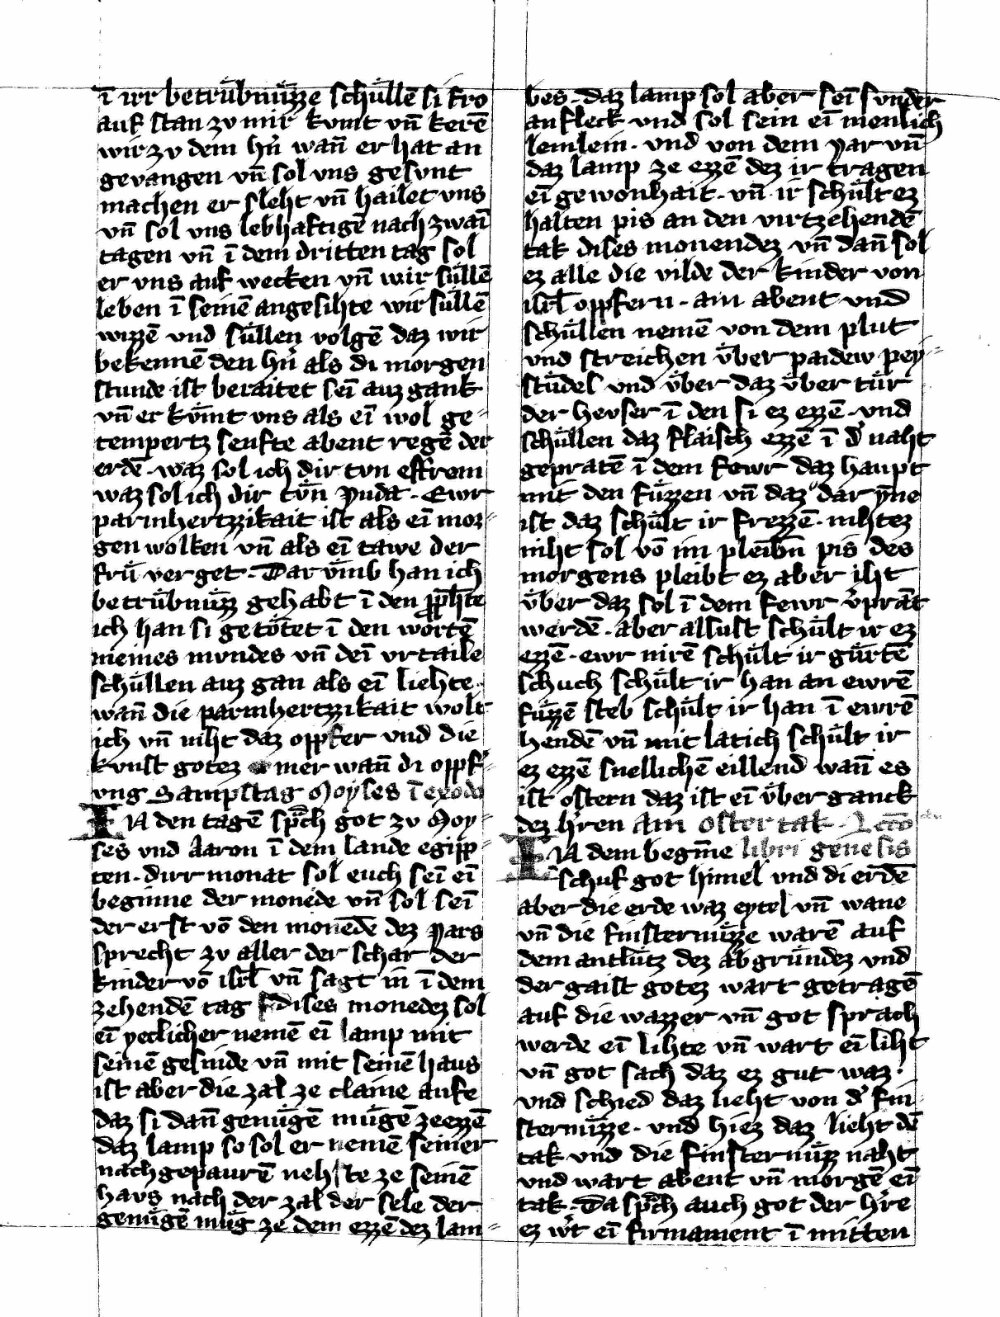 ī irr betrůbnůzze schůllē si frů
auf stan zv mir kvmt vn̄ kerē
wir zv dem hr̄n wan̄ er hat an
gevangen vn̄ sol vns gesvnt
machen er sleht vn̄ hailet vns
vn̄ sol vns lebhaftigē nach zwaī
tagen vn̄ ī dem dritten tag sol
er vns auf wecken vn̄ wir sůllē
leben ī seinē angesihte wir sůllē
wizzē vnd sůllen volgē daz wir
bekennē den hr̄n als di morgen
stunde ist beraitet seī auz gank
vn̄ er kůmt vns als eī wol ge⸗
tempertz senfte abent regē der
erdē · waz sol ich dir tvn effrem
waz sol ich dir tůn Yuda · Ewr
parmhertzzikait ist als eī mor⸗
gen wolken vn̄ als eī tawe der
frů verget · Dar vmb han ich
betrůbnůzz gehabt ī den pp̄hte
ich han si getötet ī den wortē
meines mvndes vn̄ deī vrtaile
schůllen auz gan als eī liehte ·
wan̄ die parmhertzzikait wolt
ich vn̄ niht daz oppfer vnd die
kvnst gotez mer wan̄ di oppf⸗
vng Sampstag Moyses ī exodo
IN den tagē sp̄ch got zv Moy⸗
ses vnd Aaron ī dem lande egipp⸗
ten · dirr monat sol euch seī eī
beginne der monede vn̄ sol seī
der erst vō den monede dez Yars
sprecht zv aller der schar der
kinder vō isrl̄ vn̄ sagt in ī dem
zehendē tag dises monedez sol
eī yeclicher nemē eī lamp mit
seinē gesinde vn̄ mit seinē haus
ist aber die zal ze claine aufe
daz si dan̄ genůgē můgē ze ezzē
daz lamp so sol er nemē seiner
nachgepaurē nehste ze seinē
havs nach der zal der sele der
genůgē můg ze dem ezzē dez lam⸗
bes · daz lamp sol aber seī svnder
an fleck vnd sol sein eī menlich
lemlein · vnd von dem Yar vn̄
daz lamp ze ezzē dez ir tragen
eī gewonhait · vn̄ ir schůlt ez
halten pis an den virtzehendē
tak dises monendez vn̄ dan̄ sol
ez alle die vilde der kinder von
isrl̄ oppfern · an abent vnd
schůllen nemē von dem plut
vnd streichen ůber paidew pey⸗
stůdel vnd ůber daz ůber tůr
der hevser ī den si ez ezzē · vnd
schůllen daz flaisch ezzē ī d' naht
gepratē ī dem fewr daz haupt
mit den fůzzen vn̄ daz dar ȳne
ist daz schůlt ir frezzē · nihtez
niht sol vō im pleibn̄ pis des
morgens pleibt ez aber iht
ůber daz sol ī dem fewr v'prāt
werdē · aber alsust schůlt ir ez
ezzē · ewr nirē schůlt ir gůrtē
schuch schůlt ir han an ewrē
fůzzē steb schůlt ir han ī ewrē
hendē vn̄ mit latich schůlt ir
ez ezzē snellichē eillend wan̄ es
ist ostern daz ist eī ůber ganck
dez h'ren Am oster tak · Lectō
IN dem begin̄e libri genesis
schuf got himel vnd di erdē
aber die erde waz eytel vn̄ wane
vn̄ die finsternůzze warē auf
dem antlůtz dez abgrůndez vnd
der gaist gotez wart getragē
auf die wazzer vn̄ got sprach
werde eī lihte vn̄ wart eī liht
vn̄ got sach daz ez gut waz ·
vnd schied daz lieht von d' fin⸗
sternůzze · vnd hiez daz lieht dē
tak vnd die finsternůzz naht
vnd wart abent vn̄ morgē eī
tak · Da sp̄ch auch got der h're
ez w't eī firmament ī mitten